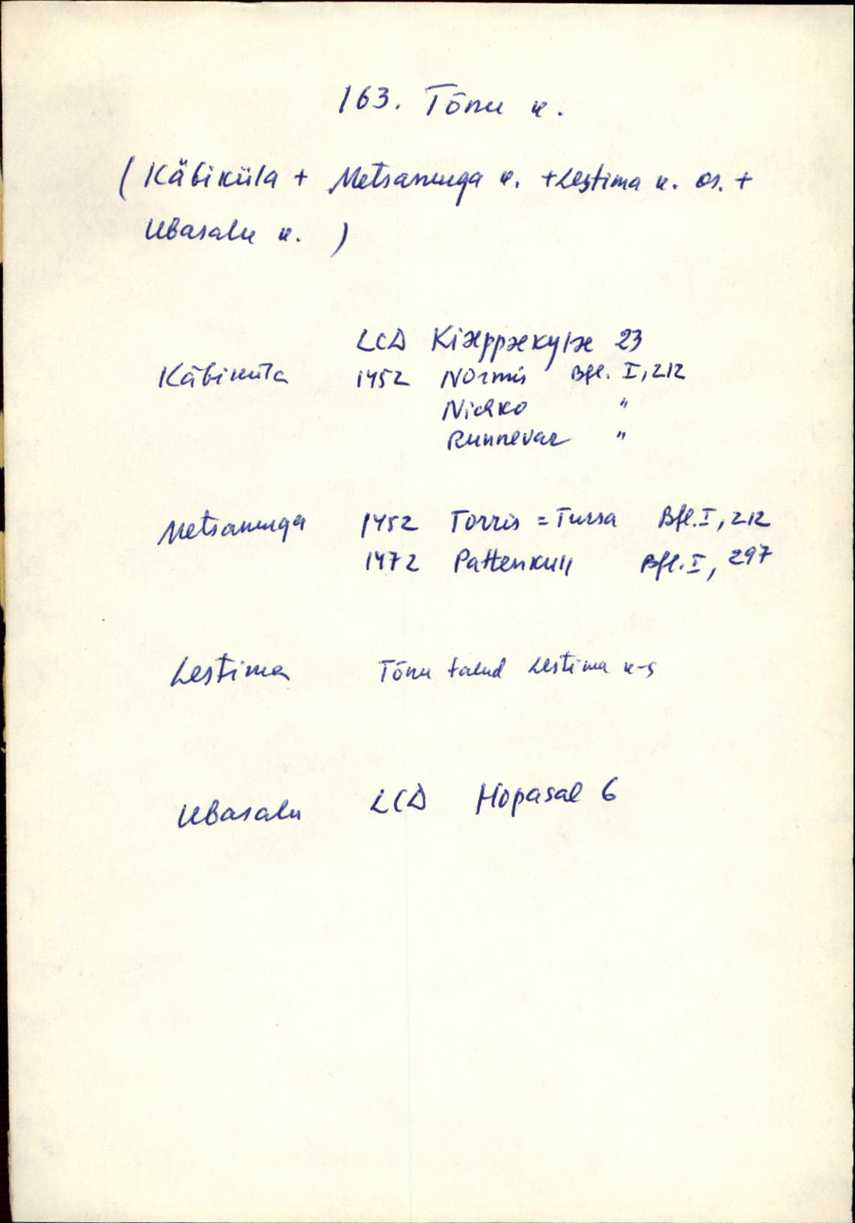 163. Tõnu k.
(Käbiküla + Metsanurga k. + Lestima k. os. +
Ubasalu k. )
LCD Kiæppækylæ 23
Käbiküla 1452 Normis Bfl. I, 212
Nichko "
Runnevar "
Metsanurga 1452 Torris = Tursa Bfl. I, 212
1472 Pattenkull Bfl. I, 297
Lestima Tõnu talud Lestima k-s
Ubasalu LCD Hopasal 6